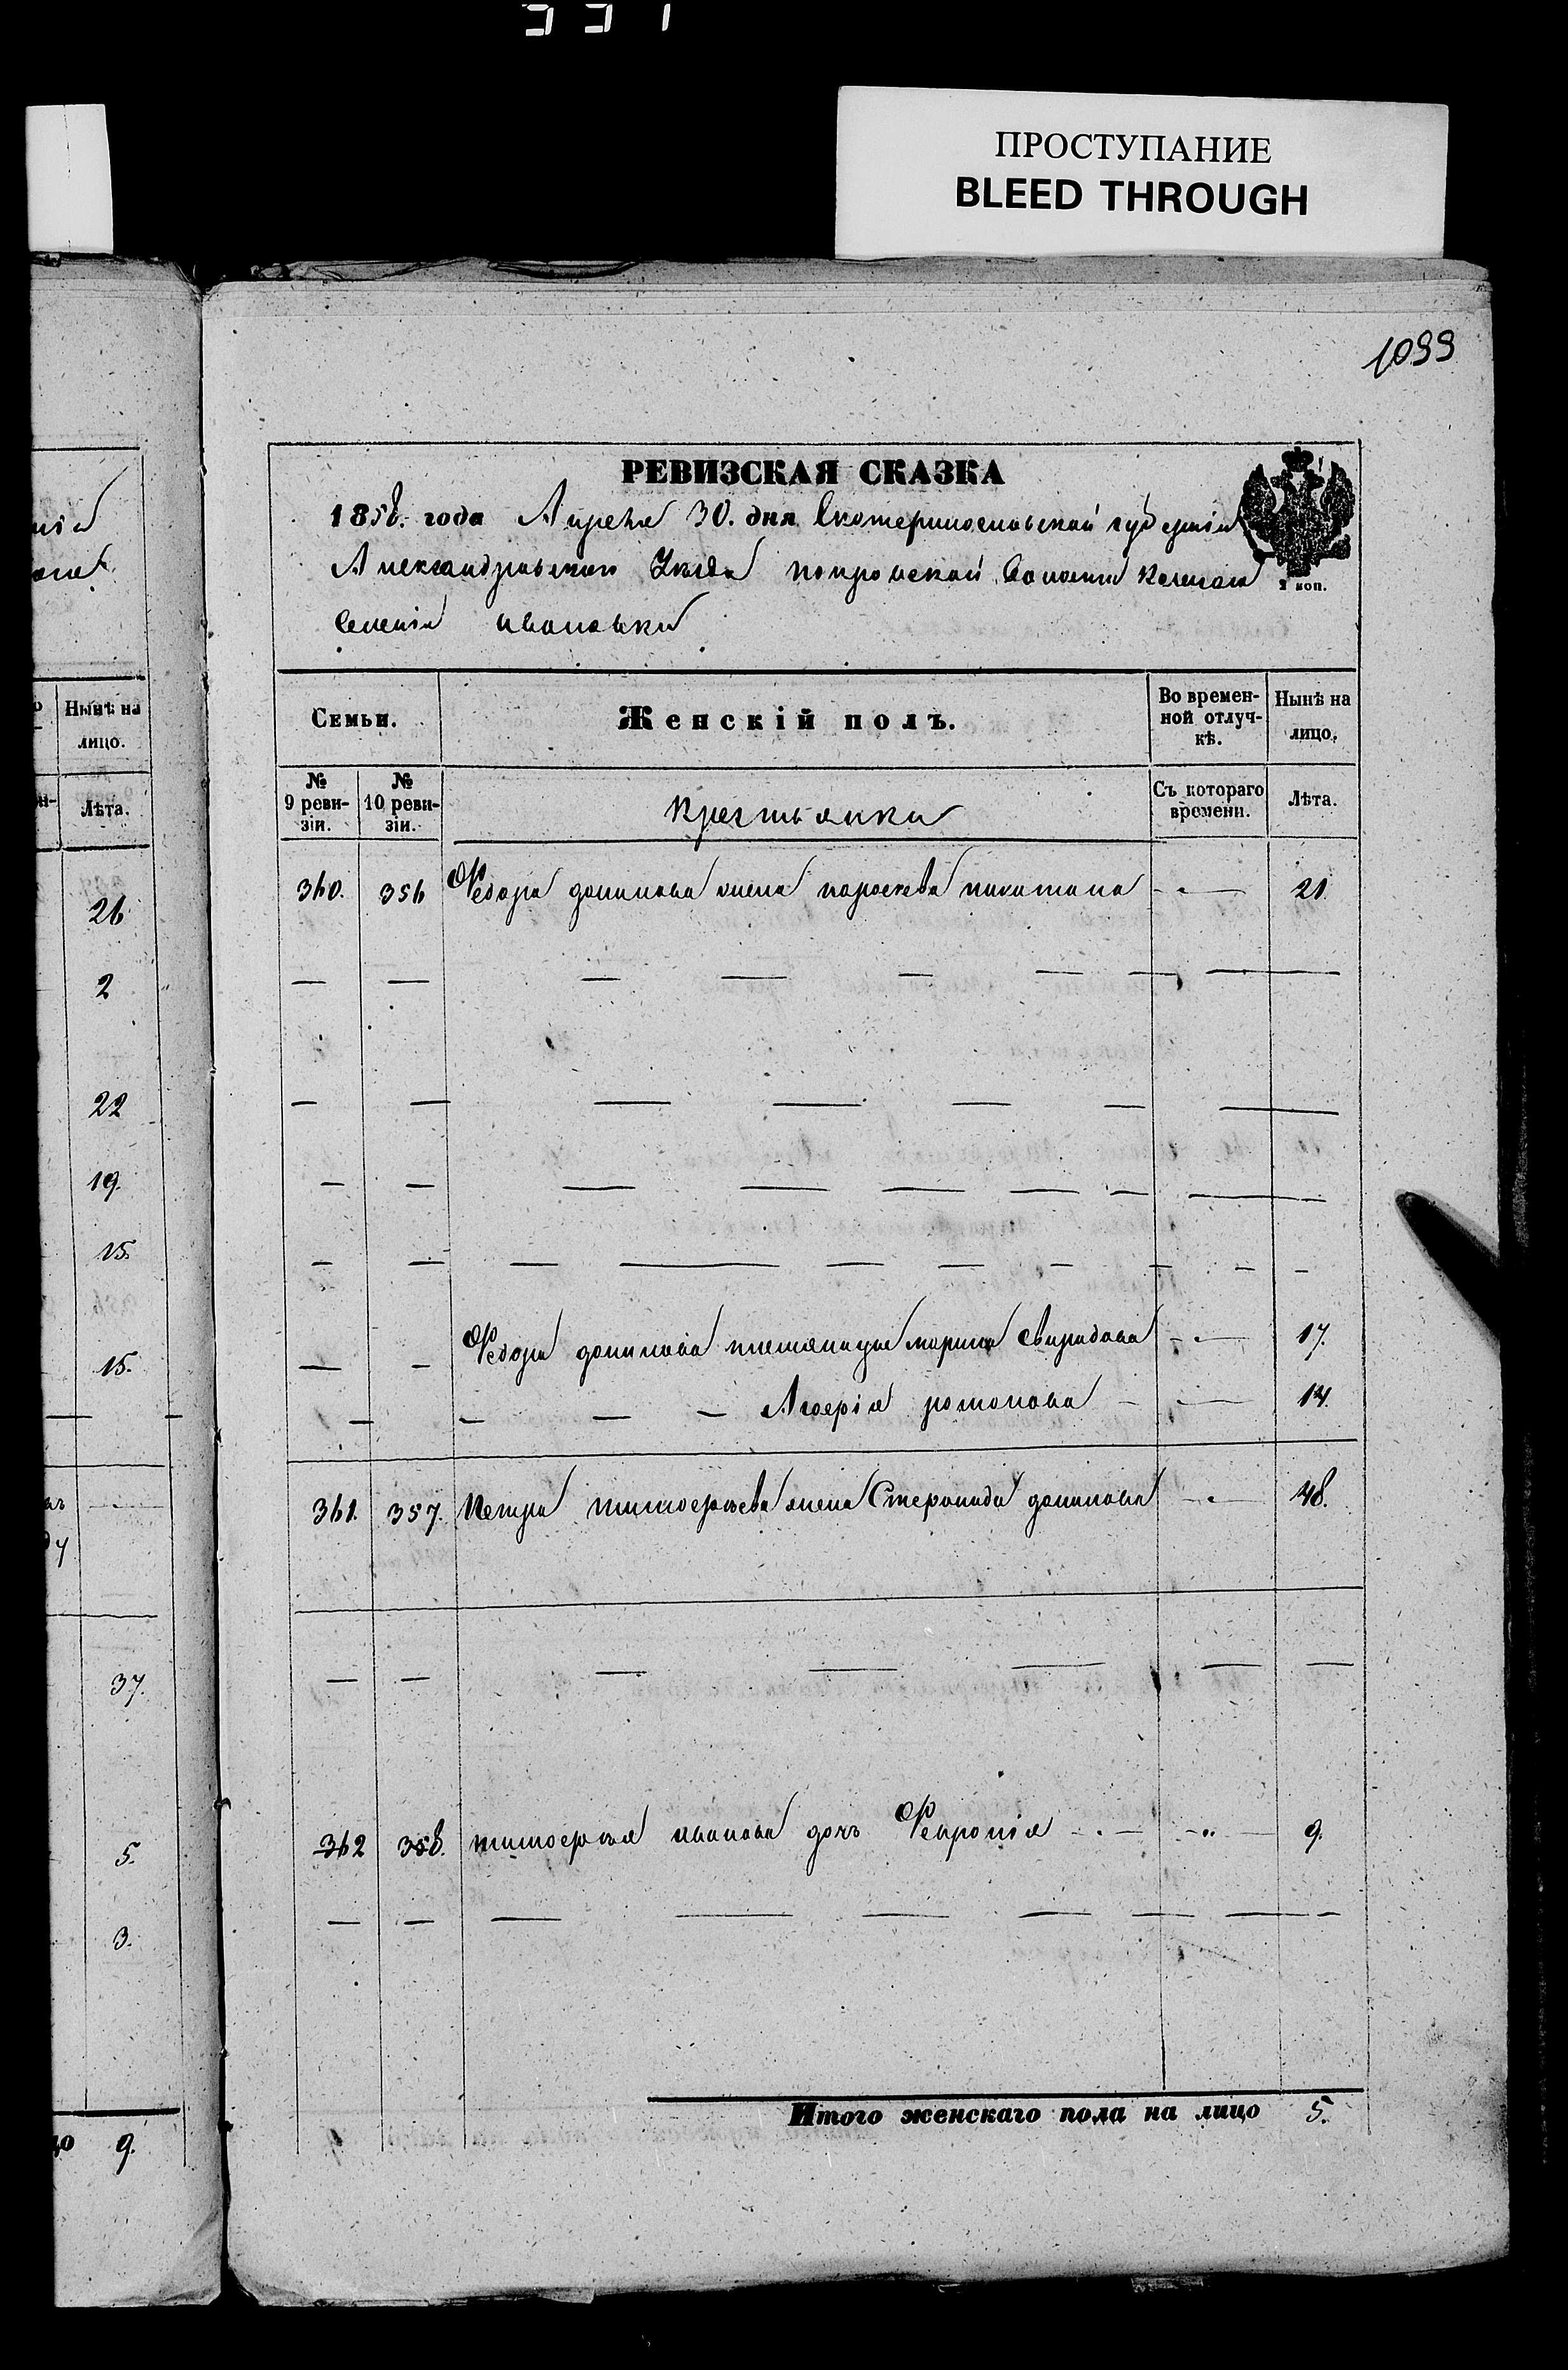 331
ПРОСТУПАНИЕ
BLEED THROUGH
1099
РЕВИЗСКАЯ СКАЗКА
1858. года Апреля 30. дня Екатеринославской губерніи
Александровскаго Уезда покровской Волости казенаго
Селенія ивановки
2 коп.
Семьи.
Женскій полъ.
Во времен-
ной отлуч-
кѣ.
Нынѣ на
лицо.
№
9 реви-
зіи.
№
10 реви-
зіи.
крестьянки
Съ котораго
времени.
Лѣта.
360. 356 Федора данилова жена параскева никитина 21.
Федора данилова племяница марина Свиридова 17.
романова 14.
361. 357. Петра тимофеева жена Степанида данилова 48.
362 358. тимофея иванова дочь Феврония 9.
Итого женскаго пола на лицо 5.
Нынѣ на
лицо.
Лѣта.
26
2
22
19.
15.
15.
37.
5.
3.
9.